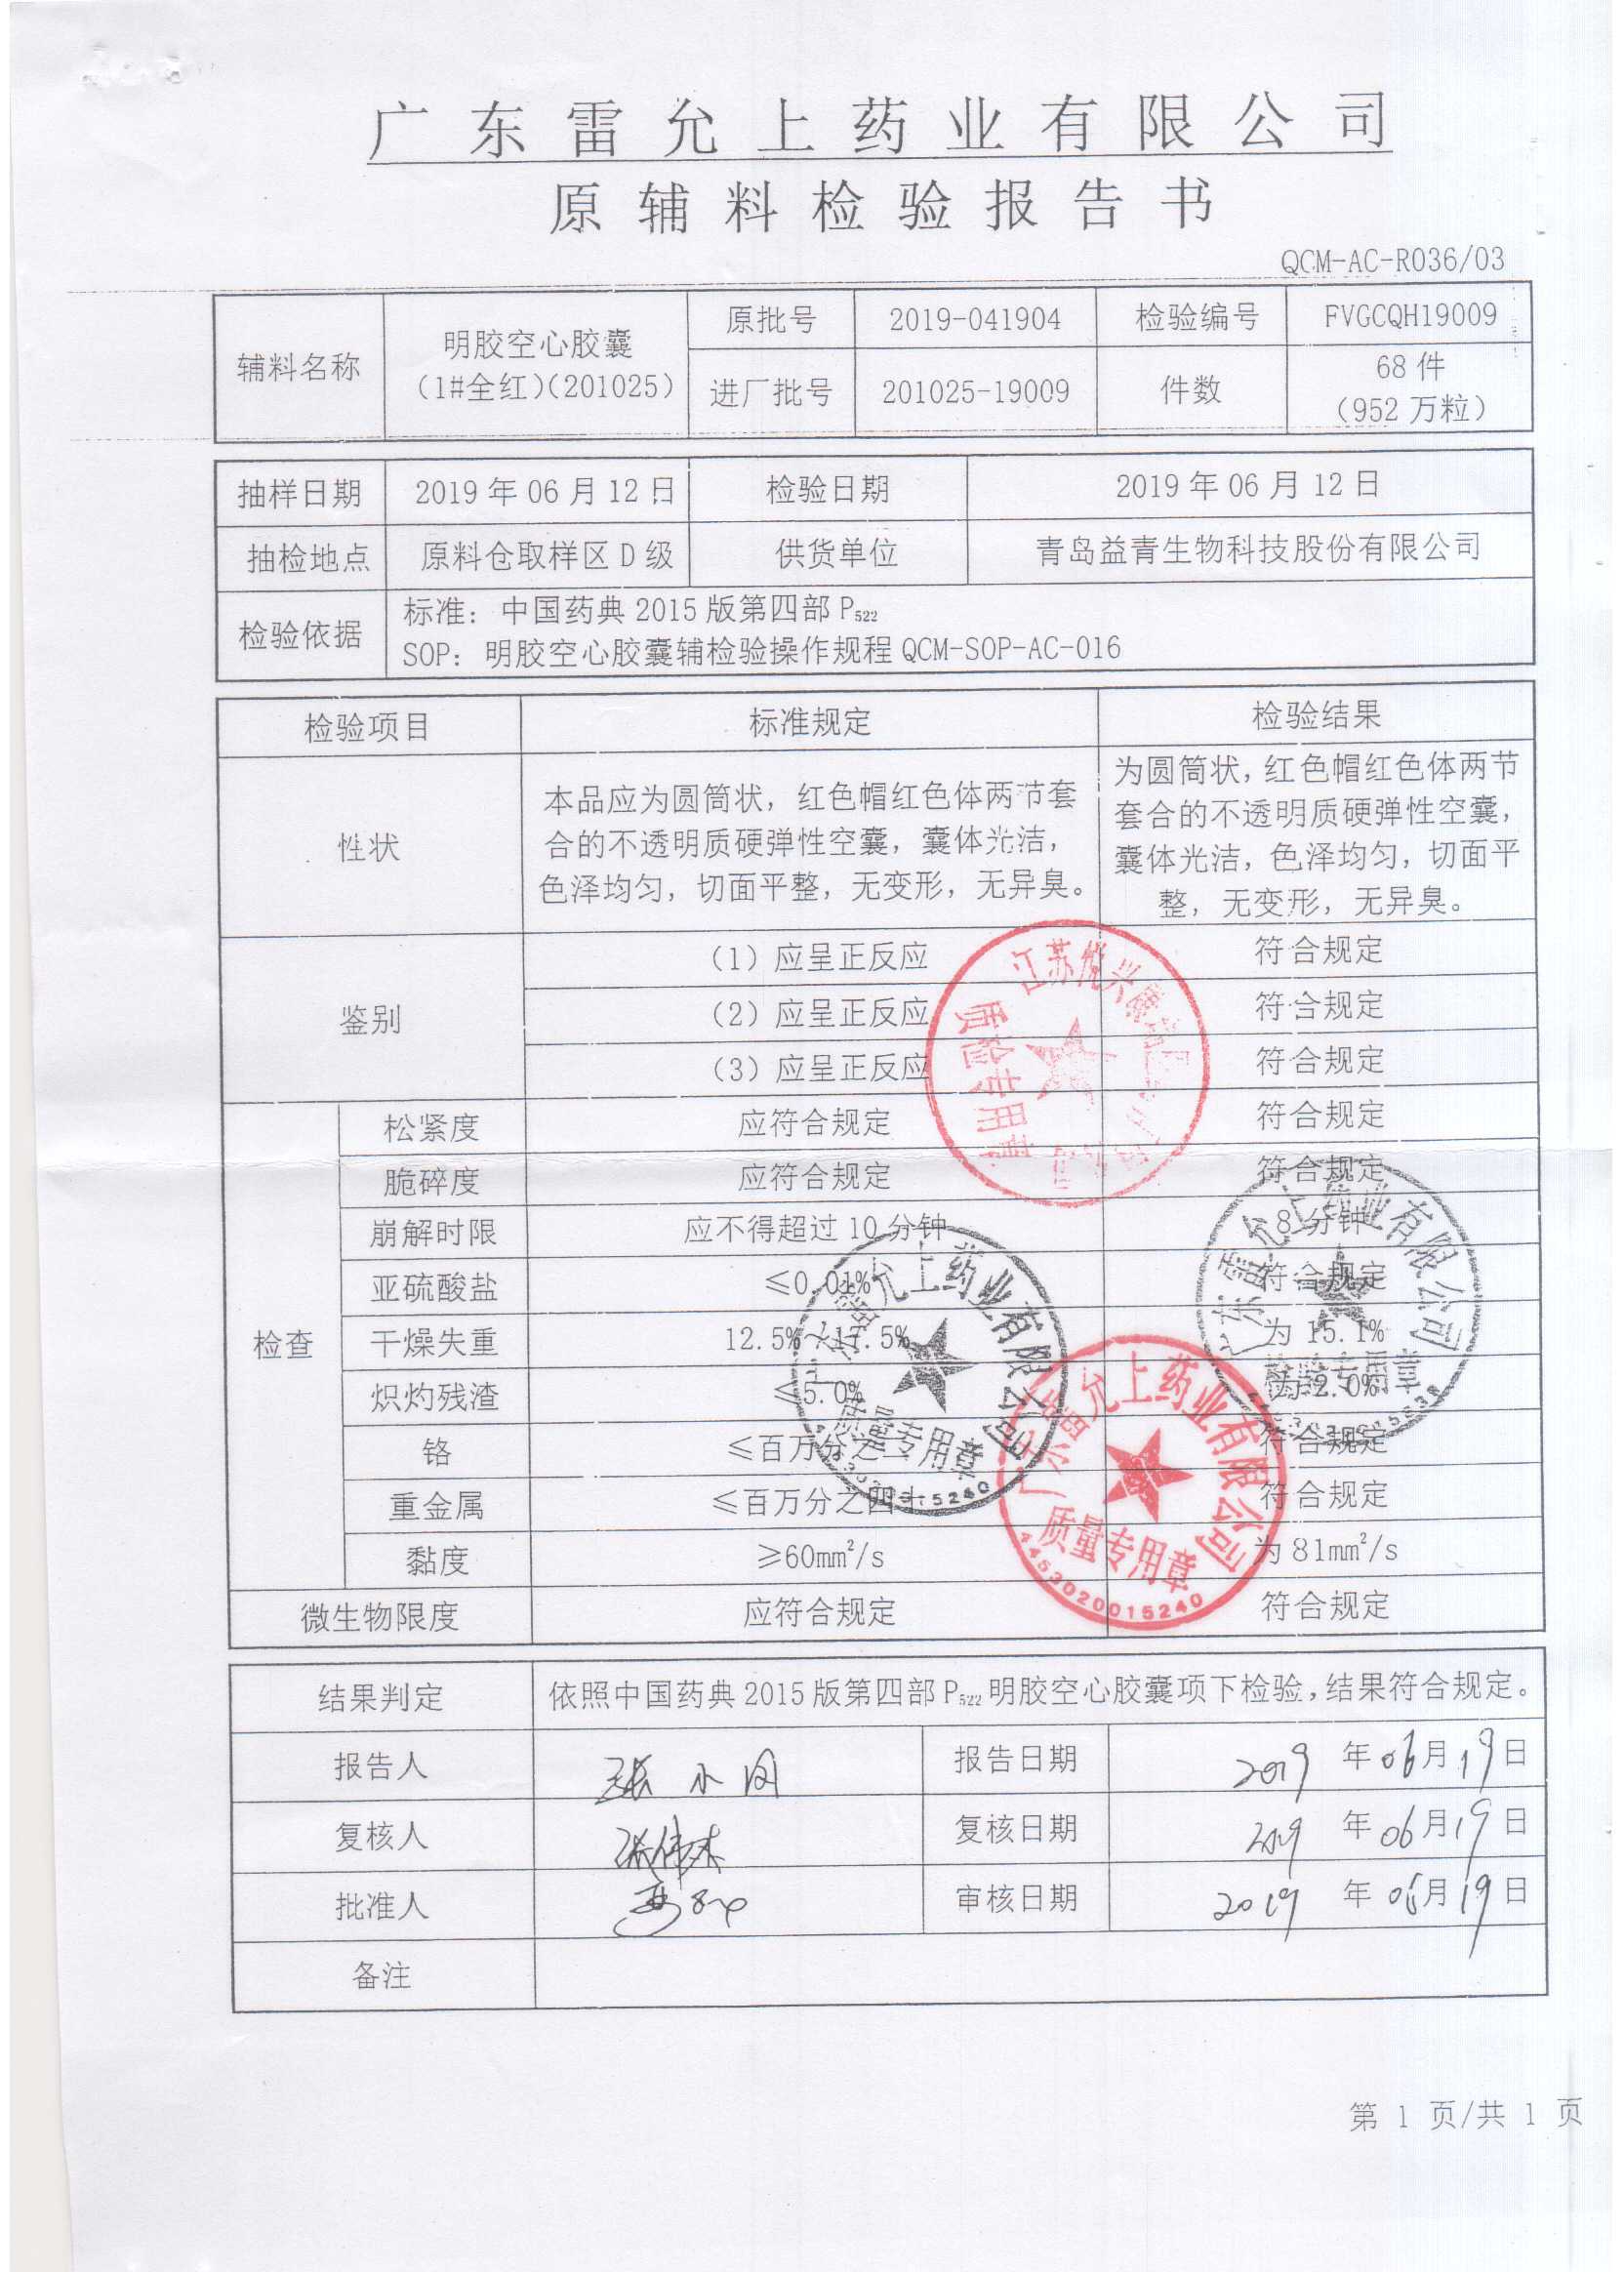 广东雷允上药业有限公司
原辅料检验报告书
QCM-AC-R036/03
辅料名称 明胶空心胶囊 (1#全红)(201025) 原批号 2019-041904 检验编号 FVGCQH19009
进厂批号 201025-19009 件数 68件 (952万粒)
抽样日期 2019年06月12日 检验日期 2019年06月12日
抽检地点 原料仓取样区D级 供货单位 青岛益青生物科技股份有限公司
检验依据 标准：中国药典2015版第四部P522
SOP：明胶空心胶囊辅检验操作规程QCM-SOP-AC-016
检验项目 标准规定 检验结果
性状
本品应为圆筒状，红色帽红色体两节套
合的不透明质硬弹性空囊，囊体光洁，
色泽均匀，切面平整，无变形，无异臭。
为圆筒状，红色帽红色体两节
套合的不透明质硬弹性空囊，
囊体光洁，色泽均匀，切面平
整，无变形，无异臭。
鉴别 (1)应呈正反应 符合规定
(2)应呈正反应 符合规定
(3)应呈正反应 符合规定
检查
松紧度 应符合规定 符合规定
脆碎度 应符合规定 符合规定
崩解时限 应不得超过10分钟 8分钟
亚硫酸盐 ≤0.01% 符合规定
干燥失重 12.5% 17.5% 为15.1%
炽灼残渣 ≤5.0% 为2.0%
铬 ≤百万分之二 符合规定
重金属 ≤百万分之四十 符合规定
黏度 ≥60mm²/s 为81mm²/s
微生物限度 应符合规定 符合规定
江苏悦兴
质检专用章
广东雷允上药业有限公司
检验专用章
广东雷允上药业有限公司
质量专用章
4453020015240
广东雷允上药业有限公司
质量专用章
4453020015240
结果判定 依照中国药典2015版第四部P522明胶空心胶囊项下检验，结果符合规定。
报告人 张水 报告日期 2019年06月19日
复核人 张伟杰 复核日期 2019年06月19日
批准人 审核日期 2019年06月19日
备注
第 1 页/共 1 页